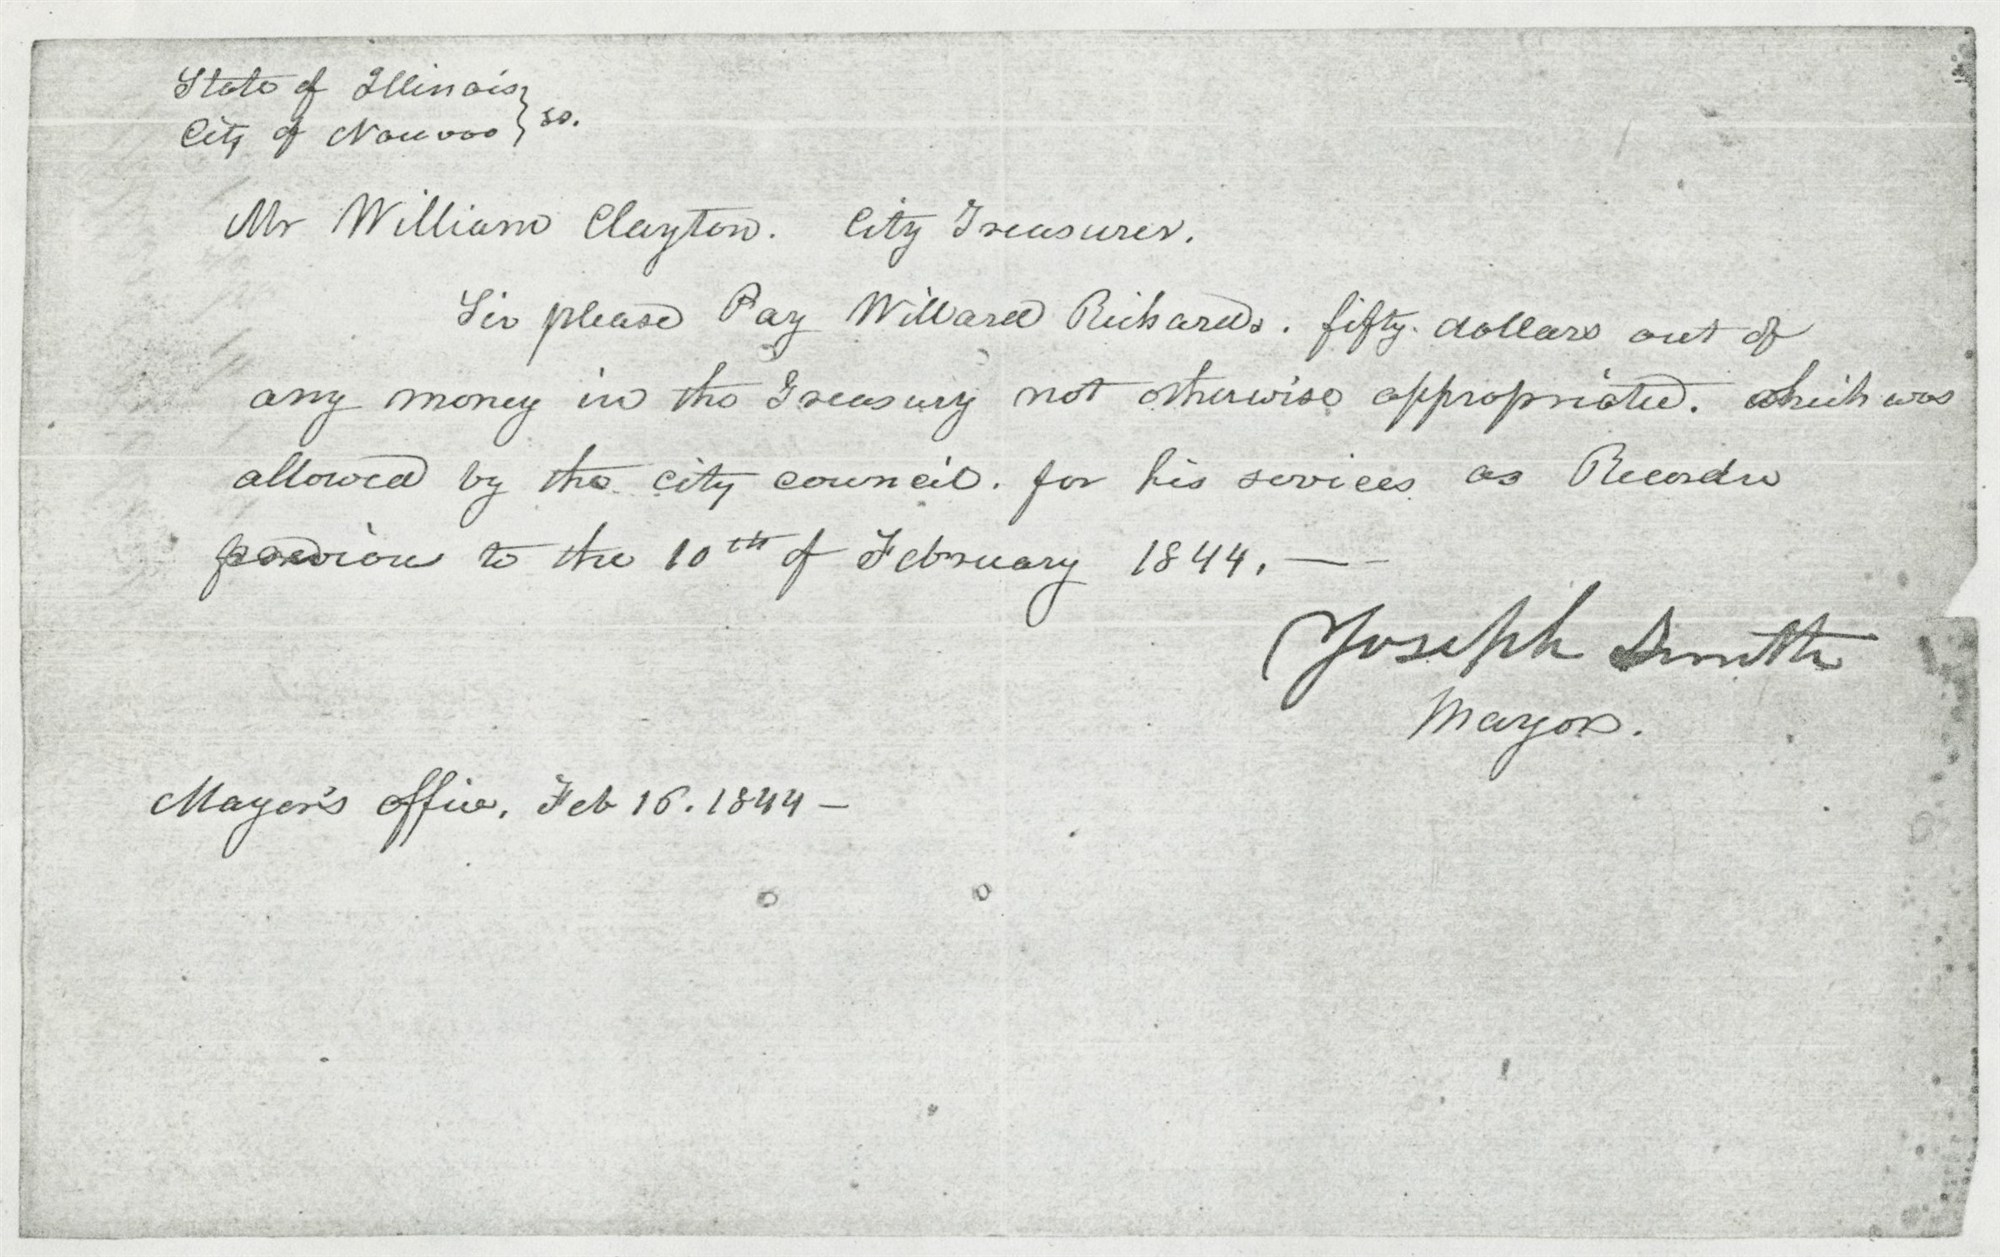 State of Illinois } ss.
City of Nauvoo
Mr William Clayton. City Treasurer.
Sir please Pay Willard Richards. fifty. dollars out of
any money in the Treasury not otherwise appropriated. which was
allowed by the city council. for his services as Recorder
previous to the 10th of February 1844. — -
Joseph Smith
Mayor.
Mayor's office, Feb 16. 1844 —